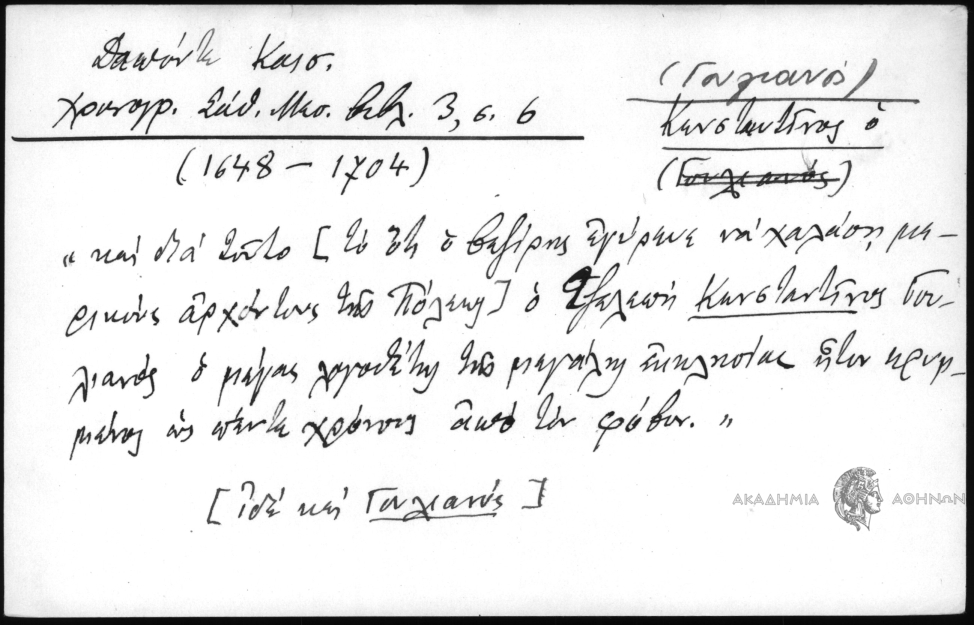 Δαπόντε Καισ.
Χρονογρ. Σάθ. Μεσ. βιβλ. 3, σ. 6
(1648 – 1704)
(Γουλιανός)
Κωνσταντῖνος ὁ
(Γουλιανός)
"καὶ διὰ τοῦτο [τὸ ὅτι ὁ βεζίρης ἐγύρευε νὰ χαλάσῃ με-
ρικοὺς ἄρχοντας τῆς Πόλεως] ὁ Τζελεπῆ Κωνσταντῖνος Γου-
λιανός ὁ μέγας λογοθέτης τῆς μεγάλης ἐκκλησίας ἦτον κρυμ-
μένος ὡς πέντε χρόνους ἀπὸ τὸν φόβον."
[ἰδὲ καὶ Γουλιανός]
ΑΚΑΔΗΜΙΑ ΑΘΗΝΩΝ